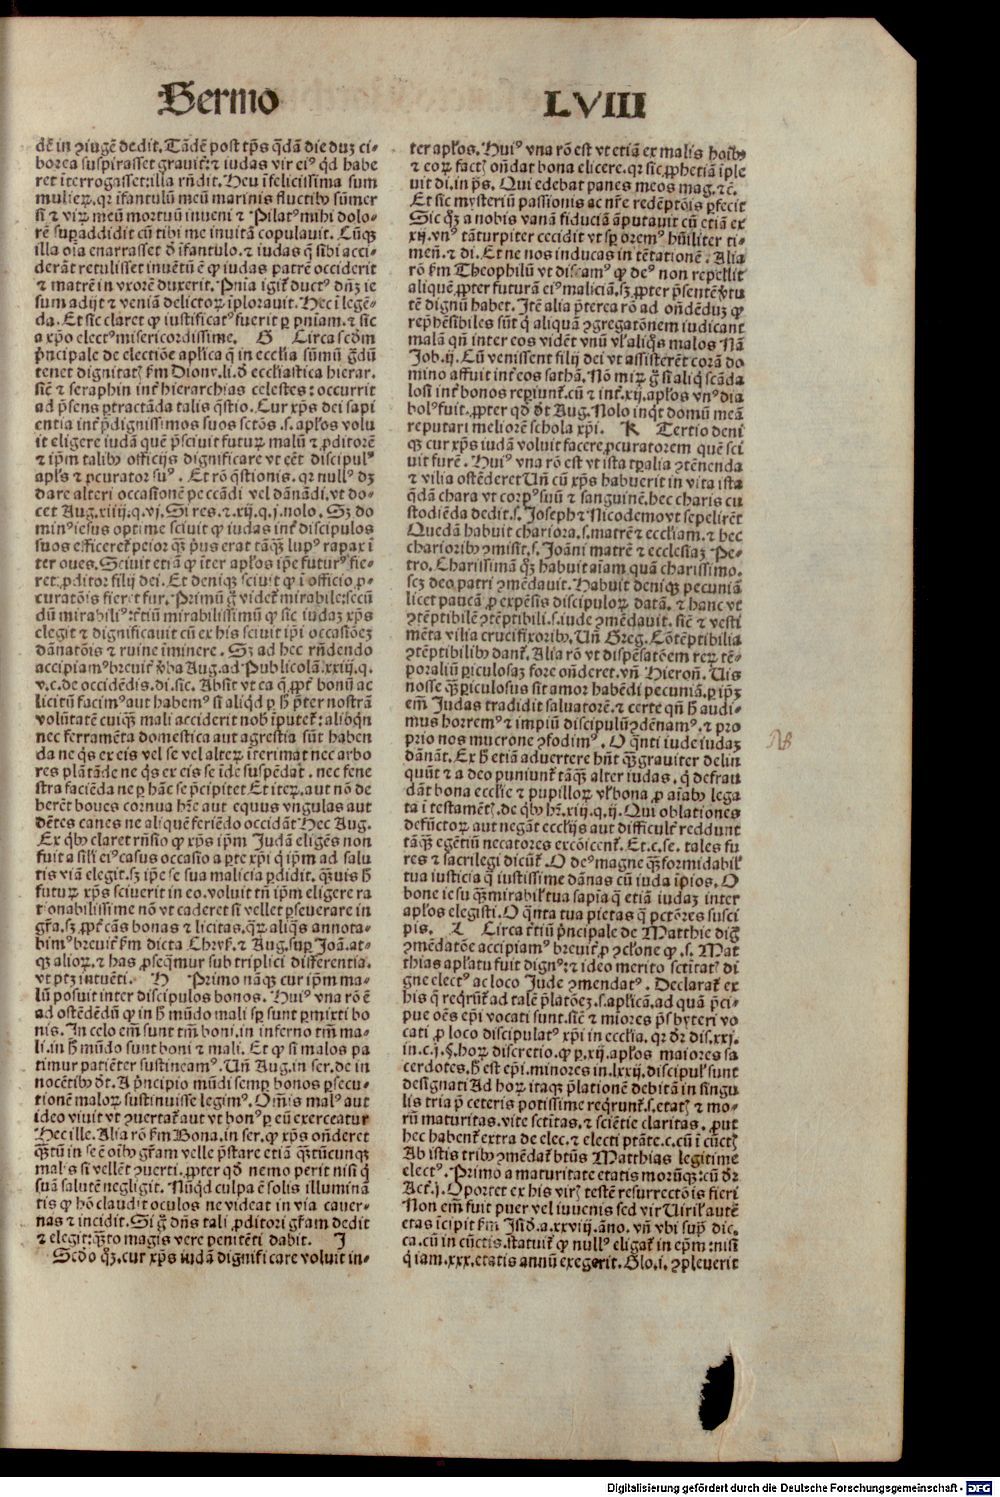 Sermo LVIII
dē in ꝯiugē dedit. Tādē post tp̄s qͥdā die duꝫ ci-
borea suspirasset grauiť ⁊ iudas vir eiꝰ qd̄ habe
ret īterrogasset: illa rn̄dit. Heu īfelicissima sum
mulieꝝ. qꝛ īfantulū meū marinis fluctibꝰ sūmer
si ⁊ viꝝ meū mortuū inueni ⁊ Pilatꝰ mihi dolo-
rē suꝑaddidit cū tibi me inuitā copulauit. Cūqꝫ
illa oīa enarrasset ď īfantulo. ⁊ iudas q̄ sibi acci-
derāt retulisset inuētū ē ꝙ iudas patrē occiderit
⁊ matrē in vxorē duxerit. Pn̄ia igiť ductꝰ dn̄ꝫ ie
sum adijt ⁊ veniā delictoꝝ īplorauit. Hec ī legē-
da. Et sic claret ꝙ iustificatꝰ fuerit ꝑ pn̄iam. ⁊ sic
a xp̄o electꝰ misericordissime. G Circa scd̄m
pͥncipale de electiōe apl̄ica q̄ in eccl̄ia sūmū gͣdū
tenet dignitatꝭ ẜm Dionv. li. ď eccl̄iastica hierar.
sic̄ ⁊ seraphin inť hierarchias celestes: occurrit
ad p̄sens ꝑtractāda talis qͣstio. Cur xp̄s dei sapi
entia inť p̄dignissimos suos sctōs. s. apl̄os volu
it eligere iudā quē p̄sciuit futuꝝ malū ⁊ ꝓditorē
⁊ ip̄m talibꝰ officijs dignificare vt eēt discipulꝰ
apl̄s ⁊ ꝓcurator suꝰ. Et rō qͣstionis. qꝛ nullꝰ dꝫ
dare alteri occasionē peccādi vel dānādi. vt do-
cet Aug. xiiij. q. vj. Si res. ⁊ .xij. q. j. nolo. Sꝫ do
minꝰ iesus optime sciuit ꝙ iudas inť discipulos
suos efficereť peior qꝫ̄ pͥus erat tāqꝫ̄ lupꝰ rapax ī
ter oues. Sciuit etiā ꝙ īter apl̄os ip̄e futurꝰ fie-
ret ꝓditor filij dei. Et deniqꝫ sciuit ꝙ ī officio ꝓ-
curatōis fieret fur. Primū gͦ videť mirabile: secū
dū mirabiliꝰ: ťtiū mirabilissimū ꝙ sic iudaꝫ xp̄s
elegit ⁊ dignificauit cū ex his sciuit ip̄i occasiōeꝫ
dānatōis ⁊ ruine īminere. Sꝫ ad hec rn̄dendo
accipiamꝰ breuiť v̓ba Aug. ad Publicolā. xxiij. q.
v. c. de occidēdis. di. sic. Absit vt ea q̄ ꝓpť bonū ac
licitū facimꝰ aut habemꝰ si aliqͥd ꝑ h̄ p̄ter nostrā
volūtatē cuiqꝫ̄ mali acciderit nob̄ īputeť: alioqͥn
nec ferramēta domestica aut agrestia sūt haben
da ne qͥs ex eis vel se vel alteꝝ īterimat nec arbo
res plātāde ne qͥs ex eis se īde suspēdat. nec fene
stra faciēda ne ꝑ hāc se p̄cipitet Et iteꝝ. aut nō de
berēt boues cornua hr̄e aut equus vngulas aut
dētes canes ne aliquē feriēdo occidāt Hec Aug.
Ex qͥbꝰ claret rn̄sio ꝙ xp̄s ip̄m Judā eligēs non
fuit a sil̄i eiꝰ casus occasio a ꝑte xp̄i qͥ ip̄m ad salu
tis viā elegit. sꝫ ip̄e se sua malicia ꝑdidit. qͣꝫuis h̄
futuꝝ xp̄s sciuerit in eo. voluit tn̄ ip̄m eligere ra
tionabilissime nō vt caderet si vellet ꝑseuerare in
gr̄a. sꝫ ꝓpť cās bonas ⁊ licitas. qͣꝝ aliqͣs annota-
bimꝰ breuiť ẜm dicta Chrys. ⁊ Aug. suꝑ Joā. at-
qꝫ alioꝝ. ⁊ has ꝓseqͣmur sub triplici differentia.
vt ptꝫ intuēti. H Primo nāqꝫ cur ip̄m ma-
lū posuit inter discipulos bonos. Huiꝰ vna rō ē
ad ostēdēdū ꝙ in h̄ mūdo mali sꝑ sunt ꝑmixti bo
nis. In celo em̄ sunt tm̄ boni. in inferno tm̄ ma-
li. in h̄ mūdo sunt boni ⁊ mali. Et ꝙ si malos pa
timur patiēter sustineamꝰ. Un̄ Aug. in ser. de in
nocētibꝰ dt̄. A pͥncipio mūdi semꝑ bonos ꝑsecu-
tionē maloꝝ sustinuisse legimꝰ. Om̄is malꝰ aut
ideo viuit vt ꝯuertať aut vt bonꝰ ꝑ eū exerceatur
Hec ille. Alia rō ẜm Bona. in ser. ꝙ xp̄s on̄deret
qͣꝫtū in se ē oībꝰ gr̄am velle p̄stare etiā qͣꝫtūcunqꝫ
malis si vellēt ꝯuerti. ꝓpter qd̄ nemo perit nisi qͥ
suā salutē negligit. Nūqͥd culpa ē solis illuminā
tis ꝙ hō claudit oculos ne videat in via cauer-
nas ⁊ incidit. Si gͦ dn̄s tali ꝓditori gr̄am dedit
⁊ elegit: qͣꝫto magis vere penitēti dabit. J
Scd̄o qꝫ̄. cur xp̄s iudā dignificare voluit in-
ter apl̄os. Huiꝰ vna rō est vt etiā ex malis hoībꝰ
⁊ eoꝝ factꝭ on̄dat bona elicere. qꝛ sic ꝓphetiā īple
uit di. in ps̄. Qui edebat panes meos mag. ⁊c̄.
Et sic mysteriū passionis ac nr̄e redēptōis ꝑfecit
Sic qꝫ̄ a nobis vanā fiduciā āputauit cū etiā ex
xij. vnꝰ tā turpiter cecidit vt sꝑ oremꝰ hūiliter ti-
men̄. ⁊ di. Et ne nos inducas in tētationē. Alia
rō ẜm Theophilū vt discamꝰ ꝙ deꝰ non repellit
aliquē ꝓpter futurā eiꝰ maliciā. sꝫ ꝓpter p̄sentē v̓tu
tē dignū habet. Itē alia p̄terea rō ad on̄dēduꝫ ꝙ
rep̄hēsibiles sūt qͥ aliquā ꝯgregatōnem iudicant
malā qn̄ inter eos vidēt vnū vl̓ aliqͦs malos Nā
Job. ij. Cū venissent filij dei vt assisterēt corā do
mino affuit inť eos sathā. Nō miꝝ gͦ si aliqͥ scāda
losi inť bonos reꝑiunť. cū ⁊ inť .xij. apl̄os vnꝰ dia
bolꝰ fuit. ꝓpter qd̄ dt̄ Aug. Nolo inqͥt domū meā
reputari meliorē schola xp̄i. K Tertio deni
qꝫ cur xp̄s iudā voluit facere ꝓcuratorem quē sci
uit furē. Huiꝰ vna rō est vt ista tꝑalia ꝯtēnenda
⁊ vilia ostēderet Un̄ cū xp̄s habuerit in vita ista
qͥdā chara vt corpꝰ suū ⁊ sanguinē. hec charis cu
stodiēda dedit. s. Joseph ⁊ Nicodemo vt sepelirēt
Quedā habuit chariora. s. matrē ⁊ eccl̄iam. ⁊ hec
charioribꝰ ꝯmisit. s. Joāni matrē ⁊ ecclesiaꝫ Pe-
tro. Charissimā qꝫ̄ habuit aīam quā charissimo.
scꝫ deo patri ꝯmēdauit. Habuit deniqꝫ pecuniā
licet paucā ꝓ expēsis discipuloꝝ datā. ⁊ hanc vt
ꝯtēptibilē ꝯtēptibili. s. iude ꝯmēdauit. sic̄ ⁊ vesti
mēta vilia crucifixoribꝰ. Un̄ Greg. Cōtēptibilia
ꝯtēptibilibꝰ danť. Alia rō vt dispēsatōem reꝝ tē-
poraliū ꝑiculosaꝫ fore on̄deret. vn̄ Hieron̄. Uis
nosse qͣꝫ ꝑiculosus sit amor habēdi pecuniā. ꝑ ip̄ꝫ
em̄ Judas tradidit saluatorē. ⁊ certe qn̄ h̄ audi-
mus horremꝰ ⁊ impiū discipulū ꝯdēnamꝰ. ⁊ pro
prio nos mucrone ꝯfodimꝰ. O qͣnti iude iudaꝫ
dānāt. Ex h̄ etiā aduertere hn̄t qͣꝫ grauiter delin
quūt ⁊ a deo puniunť tāqꝫ̄ alter iudas. qͥ defrau
dāt bona eccl̄ie ⁊ pupilloꝝ vl̓ bona ꝓ aīabꝰ lega
ta ī testamētꝭ. de qͥbꝰ hr̄. xiij. q. ij. Qui oblationes
defūctoꝝ aut negāt eccl̄ijs aut difficulť reddunt
tāqꝫ̄ egētiū necatores excōicenť. Et. c. se. tales fu
res ⁊ sacrilegi dicūť. O deꝰ magne qͣꝫ formidabil̓
tua iusticia qͥ iustissime dānas cū iuda īpios. O
bone iesu qͣꝫ mirabil̓ tua sapīa qͥ etiā iudaꝫ inter
apl̄os elegisti. O qͣnta tua pietas qͥ pctōres susci
pis. L Circa ťtiū pͥncipale de Matthie digͣ
ꝯmēdatōe accipiamꝰ breuiť ꝓ ꝯclone ꝙ .s. Mat
thias apl̄atu fuit dignꝰ: ⁊ ideo merito sctītatꝭ di
gne electꝰ ac loco Jude ꝯmendatꝰ. Declarať ex
his q̄ reqͥrūť ad talē p̄latōeꝫ. s. apl̄icā. ad quā pͥci-
pue oēs ep̄i vocati sunt. sic̄ ⁊ miores p̄sbyteri vo
cati ꝓ loco discipulatꝰ xp̄i in eccl̄ia. qꝛ dr̄ dis. xxj.
in. c. j. §. hoꝝ discretio. ꝙ ꝑ .xij. apl̄os maiores sa
cerdotes. h̄ est ep̄i. minores in. lxxij. discipul̓ sunt
designati Ad hoꝝ itaqꝫ p̄lationē debitā in singu
lis tria p̄ ceteris potissime reqͥrunť. s. etatꝭ ⁊ mo-
rū maturitas. vite sctītas. ⁊ sciētie claritas. ꝓut
hec habenť extra de elec. ⁊ electi ptāte. c. cū ī cūctꝭ
Ab istis tribꝰ ꝯmēdať btūs Matthias legitime
electꝰ. Primo a maturitate etatis morūqꝫ: cū dr̄
Act. j. Oportet ex his virꝭ testē resurrectōis fieri
Non em̄ fuit puer vel iuuenis sed vir Uiril̓ autē
etas īcipit ẜm Isid. a. xxviij. āno. vn̄ vbi supͣ dic.
ca. cū in cūctis. statuiť ꝙ nullꝰ eligať in ep̄m: nisi
qͥ iam. xxx. etatis annū exegerit. Glo. i. ꝯpleuerit
Digitalisierung gefördert durch die Deutsche Forschungsgemeinschaft - DFG